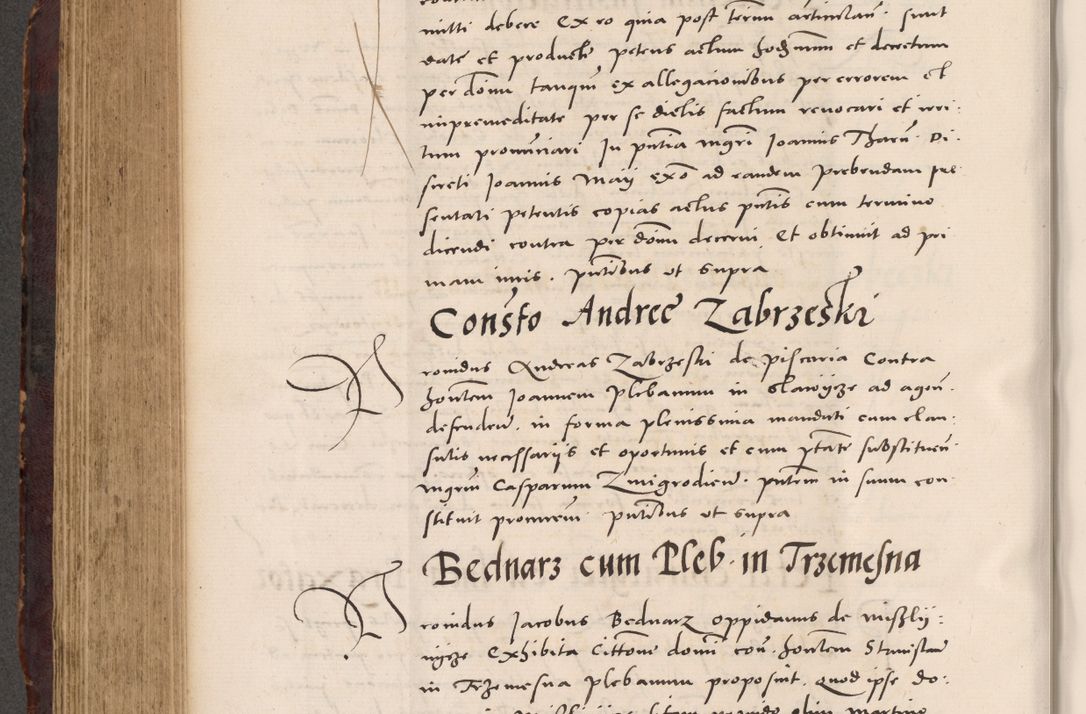 mitti debere Ex ro quia post termi articulan. sunt
date et producte petens actum hodiernum et decretum
per dominum tanquam ex allegacionibus per errorem et
impremeditate per se dictis factum revocari et irri-
tum pronunciari In pntia mgri Joannis Tharn. Di-
screti Joannis Maij exo ad eandem prebendam pre
sentati petentis copias actus pntis cum termino
dicendi contra per dominum decerni. Et obtinuit ad pri
mam iuris. pntibus ut supra
Consto Andree Zabrzeski
rovidus Andreas Zabrzeski de piscaria Contra
honestem Joannem plebanum in Slawycze ad agen.
defenden. in forma plenissima mandati cum clau-
sulis necessarijs et oportunis et cum ptate substituen
mgrum Casparum Zmigrodien. pntem in suum con-
stituit procurem. pntibus ut supra
Bednarz cum Pleb. in Trzemesna
rovidus Jacobus Bednarz oppidanus de Mislij-
nycze Exhibita Cittone domi con. hontem Stanislaum
in Trzemesna plebanum proposuit. Quod ipse do-
olim Martino